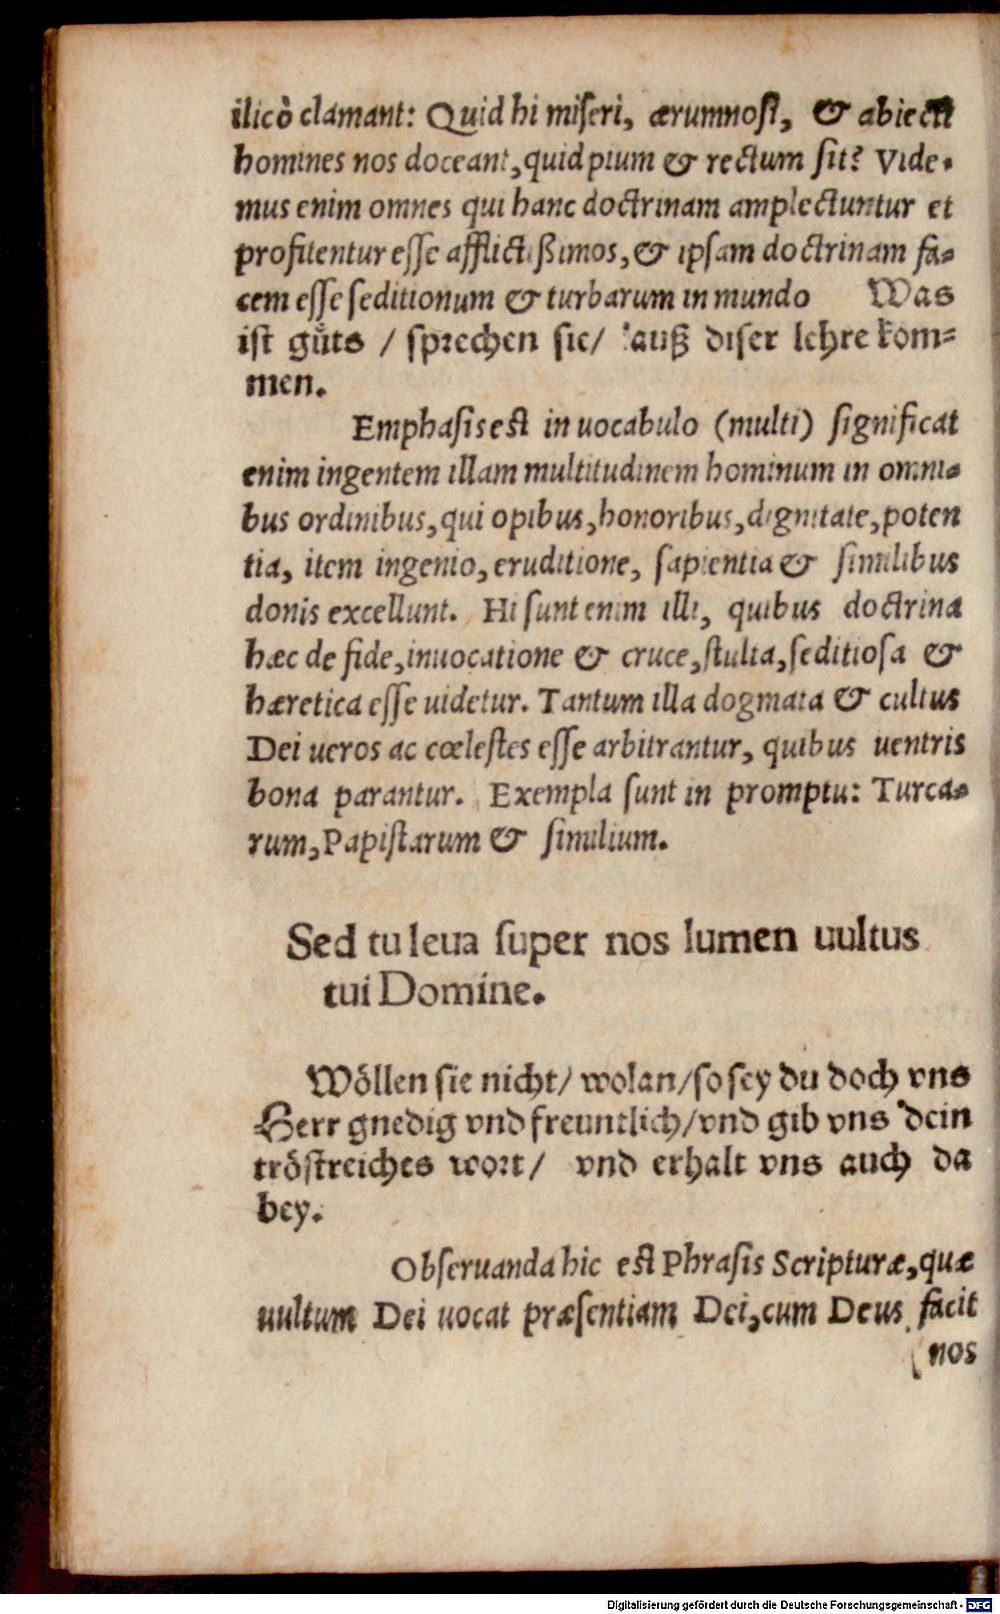 ilicò clamant: Quid hi miseri, ærumnosi, & abiecti
homines nos doceant, quid pium & rectum sit? Vide-
mus enim omnes qui hanc doctrinam amplectuntur et
profitentur esse afflictißimos, & ipsam doctrinam fa-
cem esse seditionum & turbarum in mundo Was
ist gůts / sprechen sie / auß diser lehre kom=
men.
Emphasis est in uocabulo (multi) significat
enim ingentem illam multitudinem hominum in omni-
bus ordinibus, qui opibus, honoribus, dignitate, poten
tia, item ingenio, eruditione, sapientia & similibus
donis excellunt. Hi sunt enim illi, quibus doctrina
hæc de fide, inuocatione & cruce, stulta, seditiosa &
hæretica esse uidetur. Tantum illa dogmata & cultus
Dei ueros ac cœlestes esse arbitrantur, quibus uentris
bona parantur. Exempla sunt in promptu: Turca-
rum, Papistarum & similium.
Sed tu leua super nos lumen uultus
tui Domine.
Wöllen sie nicht / wolan / so sey du doch vns
Herr gnedig vnd freuntlich / vnd gib vns dein
tröstreiches wort / vnd erhalt vns auch da
bey.
Obseruanda hic est Phrasis Scripturæ, quæ
uultum Dei uocat præsentiam Dei, cum Deus facit
nos
Digitalisierung gefördert durch die Deutsche Forschungsgemeinschaft - DFG